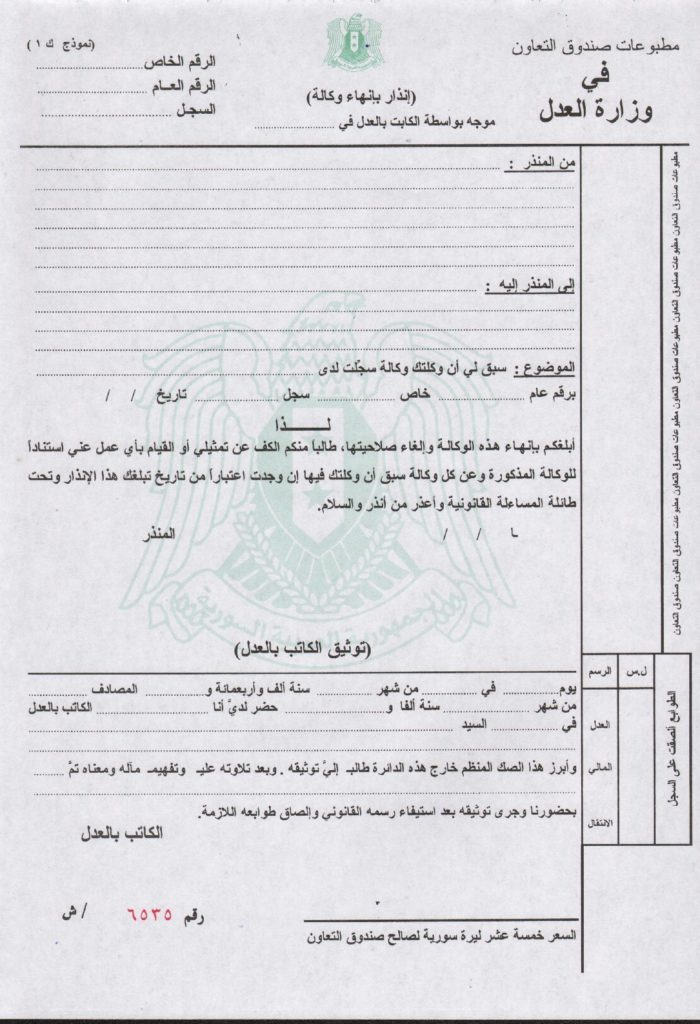 مطبوعات صندوق التعاون
في
وزارة العدل
(إنذار بإنهاء وكالة)
موجه بواسطة الكابت بالعدل في ....................
(نموذج ك ١ )
الرقم الخاص....................
الرقم العـام ....................
السجـل ....................
من المنذر : ....................
إلى المنذر إليه : ....................
الموضوع : سبق لي أن وكلتك وكالة سجّلت لدى ....................
برقم عام .................... خاص .................... سجل .................... تاريخ / /
لـــــذا
أبلغكم بإنهاء هذه الوكالة وإلغاء صلاحيتها، طالباً منكم الكف عن تمثيلي أو القيام بأي عمل عني استناداً
للوكالة المذكورة وعن كل وكالة سبق أن وكلتك فيها إن وجدت اعتباراً من تاريخ تبلغك هذا الإنذار وتحت
طائلة المساءلة القانونية وأعذر من أنذر والسلام.
/ / المنذر
الجمهورية العربية السورية
(توثيق الكاتب بالعدل)
يوم.......... في .......... من شهر .......... سنة ألف وأربعمائة و.......... المصادف
من شهر .......... سنة ألفا و.......... حضر لديَّ أنا .......... الكاتب بالعدل
في .......... السيد ....................
وأبرز هذا الصك المنظم خارج هذه الدائرة طالبـ إليَّ توثيقه . وبعد تلاوته عليـ وتفهيمـ مآله ومعناه تمَّ ..........
بحضورنا وجرى توثيقه بعد استيفاء رسمه القانوني وإلصاق طوابعه اللازمة.
الكاتب بالعدل
رقم ٦٥٣٥ / ش
السعر خمسة عشر ليرة سورية لصالح صندوق التعاون
مطبوعات صندوق التعاون مطبوعات صندوق التعاون مطبوعات صندوق التعاون مطبوعات صندوق التعاون مطبوعات صندوق التعاون صندوق التعاون
الطوابع ألصقت على السجل
ل.س
الرسم
العدل
المالي
الانتقال